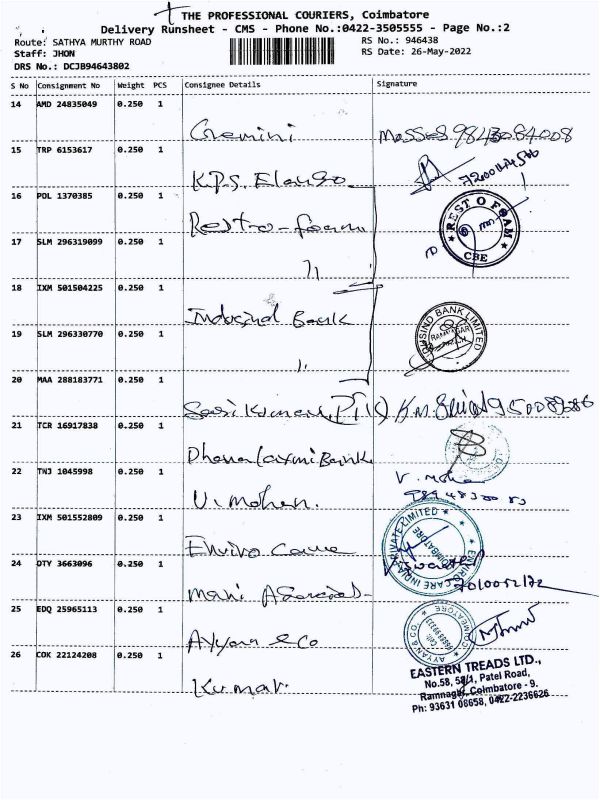 THE PROFESSIONAL COURIERS, Coimbatore
Delivery Runsheet - CMS - Phone No.:0422-3505555 - Page No.:2
Route: SATHYA MURTHY ROAD RS No.: 946438
Staff: JHON RS Date: 26-May-2022
DRS No.: DCJB94643802
S No Consignment No Weight PCS Consignee Details Signature
14 AMD 24835049 0.250 1
Gemini 9843084008
15 TRP 6153617 0.250 1
K.P.S.
16 PDL 1370385 0.250 1
Restro-foam REST O FOAM CBE
17 SLM 296319099 0.250 1
18 IXM 501504225 0.250 1
Indusind Bank INDUSIND BANK LIMITED RAMNAGAR
19 SLM 296330770 0.250 1
20 MAA 288183771 0.250 1
Sasikumar
21 TCR 16917838 0.250 1
Dhanalaxmi Bank
22 TNJ 1045998 0.250 1
V. Mohan. V. Moha
23 IXM 501552809 0.250 1
Enviro Care ENVIRO CARE INDIA PRIVATE LIMITED COIMBATORE
24 OTY 3663096 0.250 1
Mani
25 EDQ 25965113 0.250 1
Ayyan & Co AYYAN & CO. COIMBATORE
26 COK 22124208 0.250 1
Kumar.
EASTERN TREADS LTD.,
No.58, 58/1, Patel Road,
Ramnagar, Coimbatore - 9.
Ph: 93631 08658, 0422-2236626